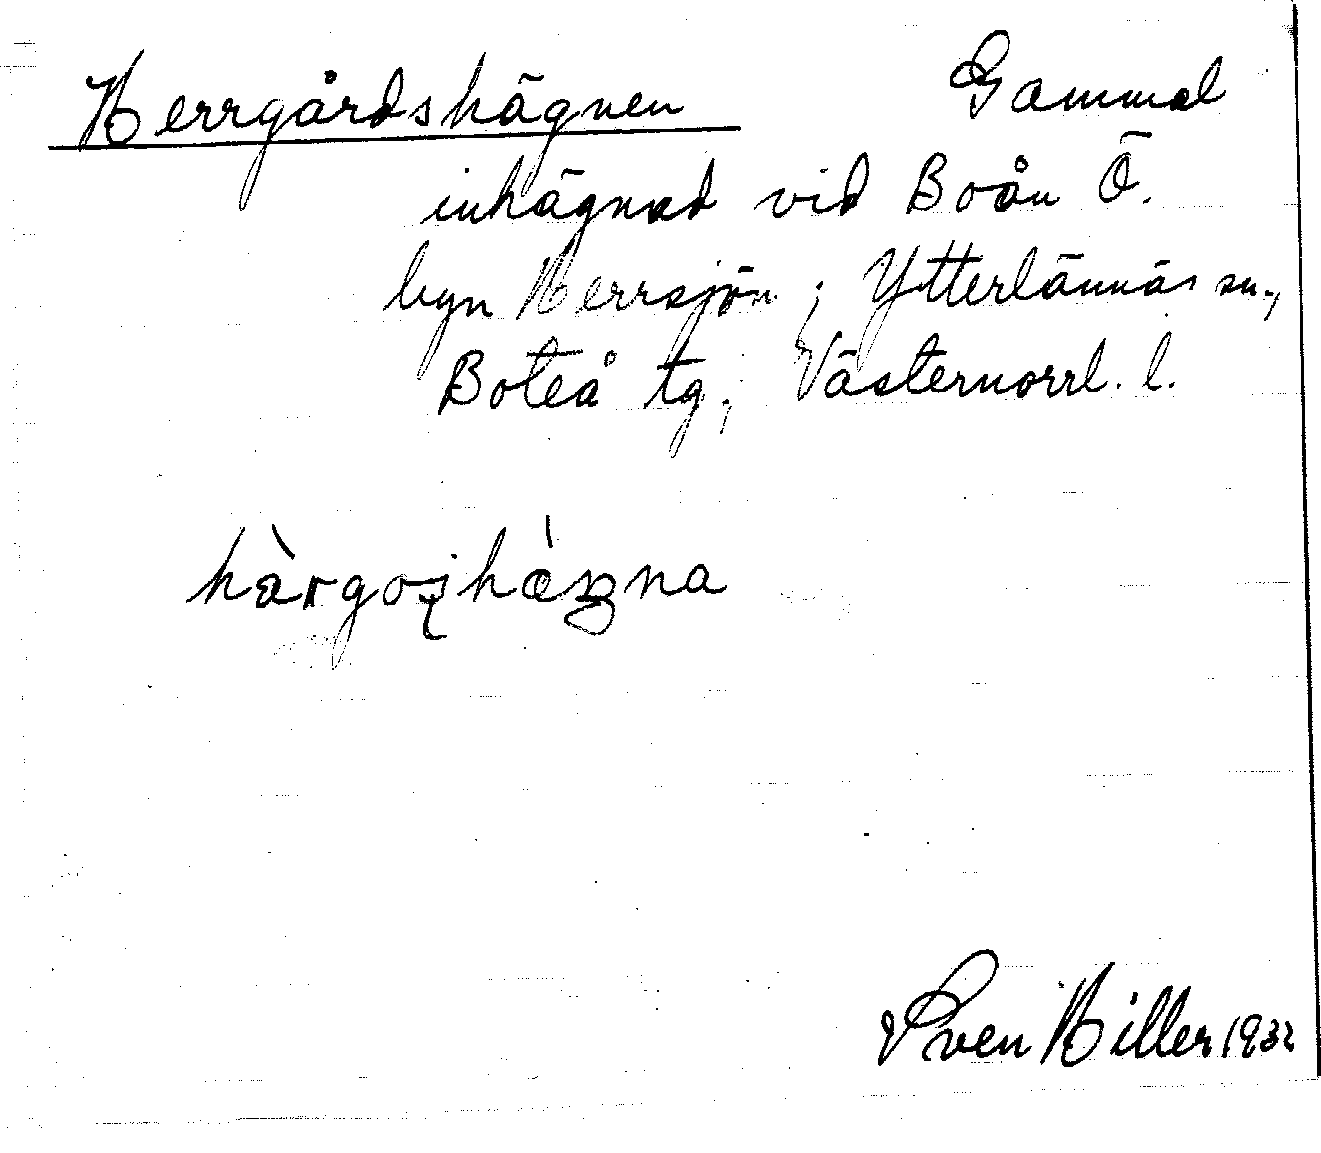 Herrgårdshägnen Gammal
inhägnad vid Boån Ö.
byn Herrsjön; Ytterlännäs sn.,
Boteå tg., Västernorrl. l.
Sven Hiller 1932